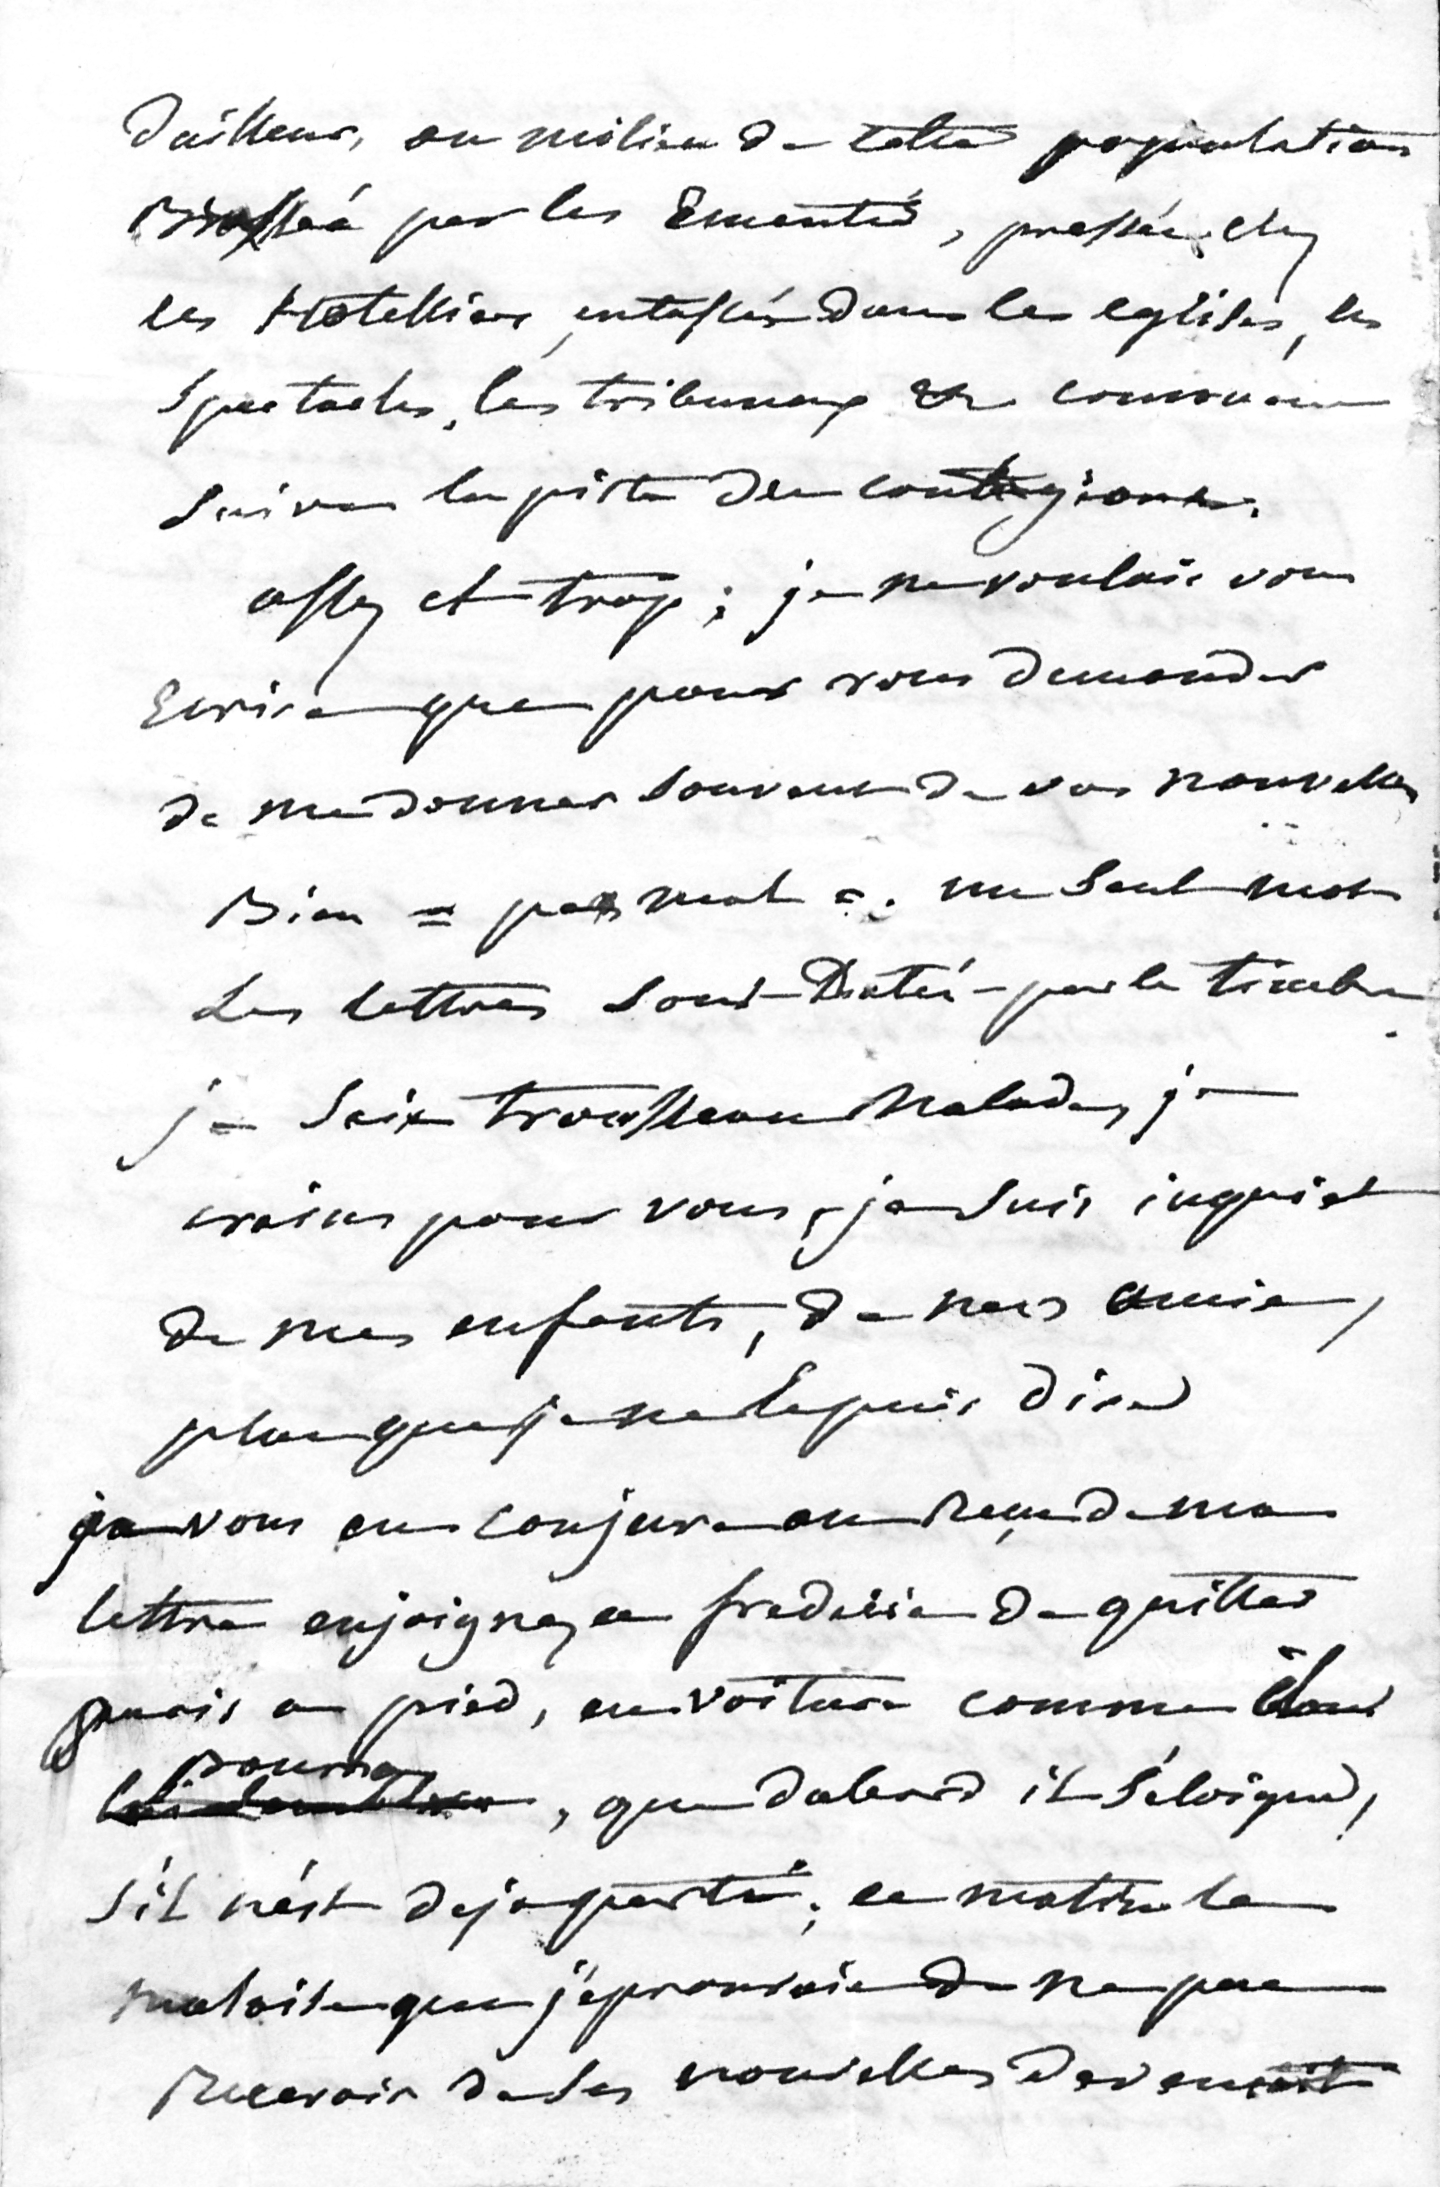 D'ailleurs, au milieu de cette population
par les Emeutes, pressée chez
les Hotelliers, entassés dans les eglises, les
spectacles, les tribunaux &c comment
suivre la piste des contagions.
assez et trop; je ne voulais vous
Ecrire que pour vous demander
de me donner souvent de vos nouvelles
Bien = pas mal =. un seul mot
Les lettres sont Datées par le timbre
je sais trousseau Malade, je
crains pour vous, je suis inquiet
de mes enfants, de nos amis,
plus que je ne le puis dire
je vous en conjure au reçu de ma
lettre enjoignez a frederic de quitter
paris a pied, en voiture comme il
pourra, que dabord il s'éloigne,
s'il n'est deja parti; ce matin le
malaise que j'eprouvais de ne pas
Recevoir de ses nouvelles devenait